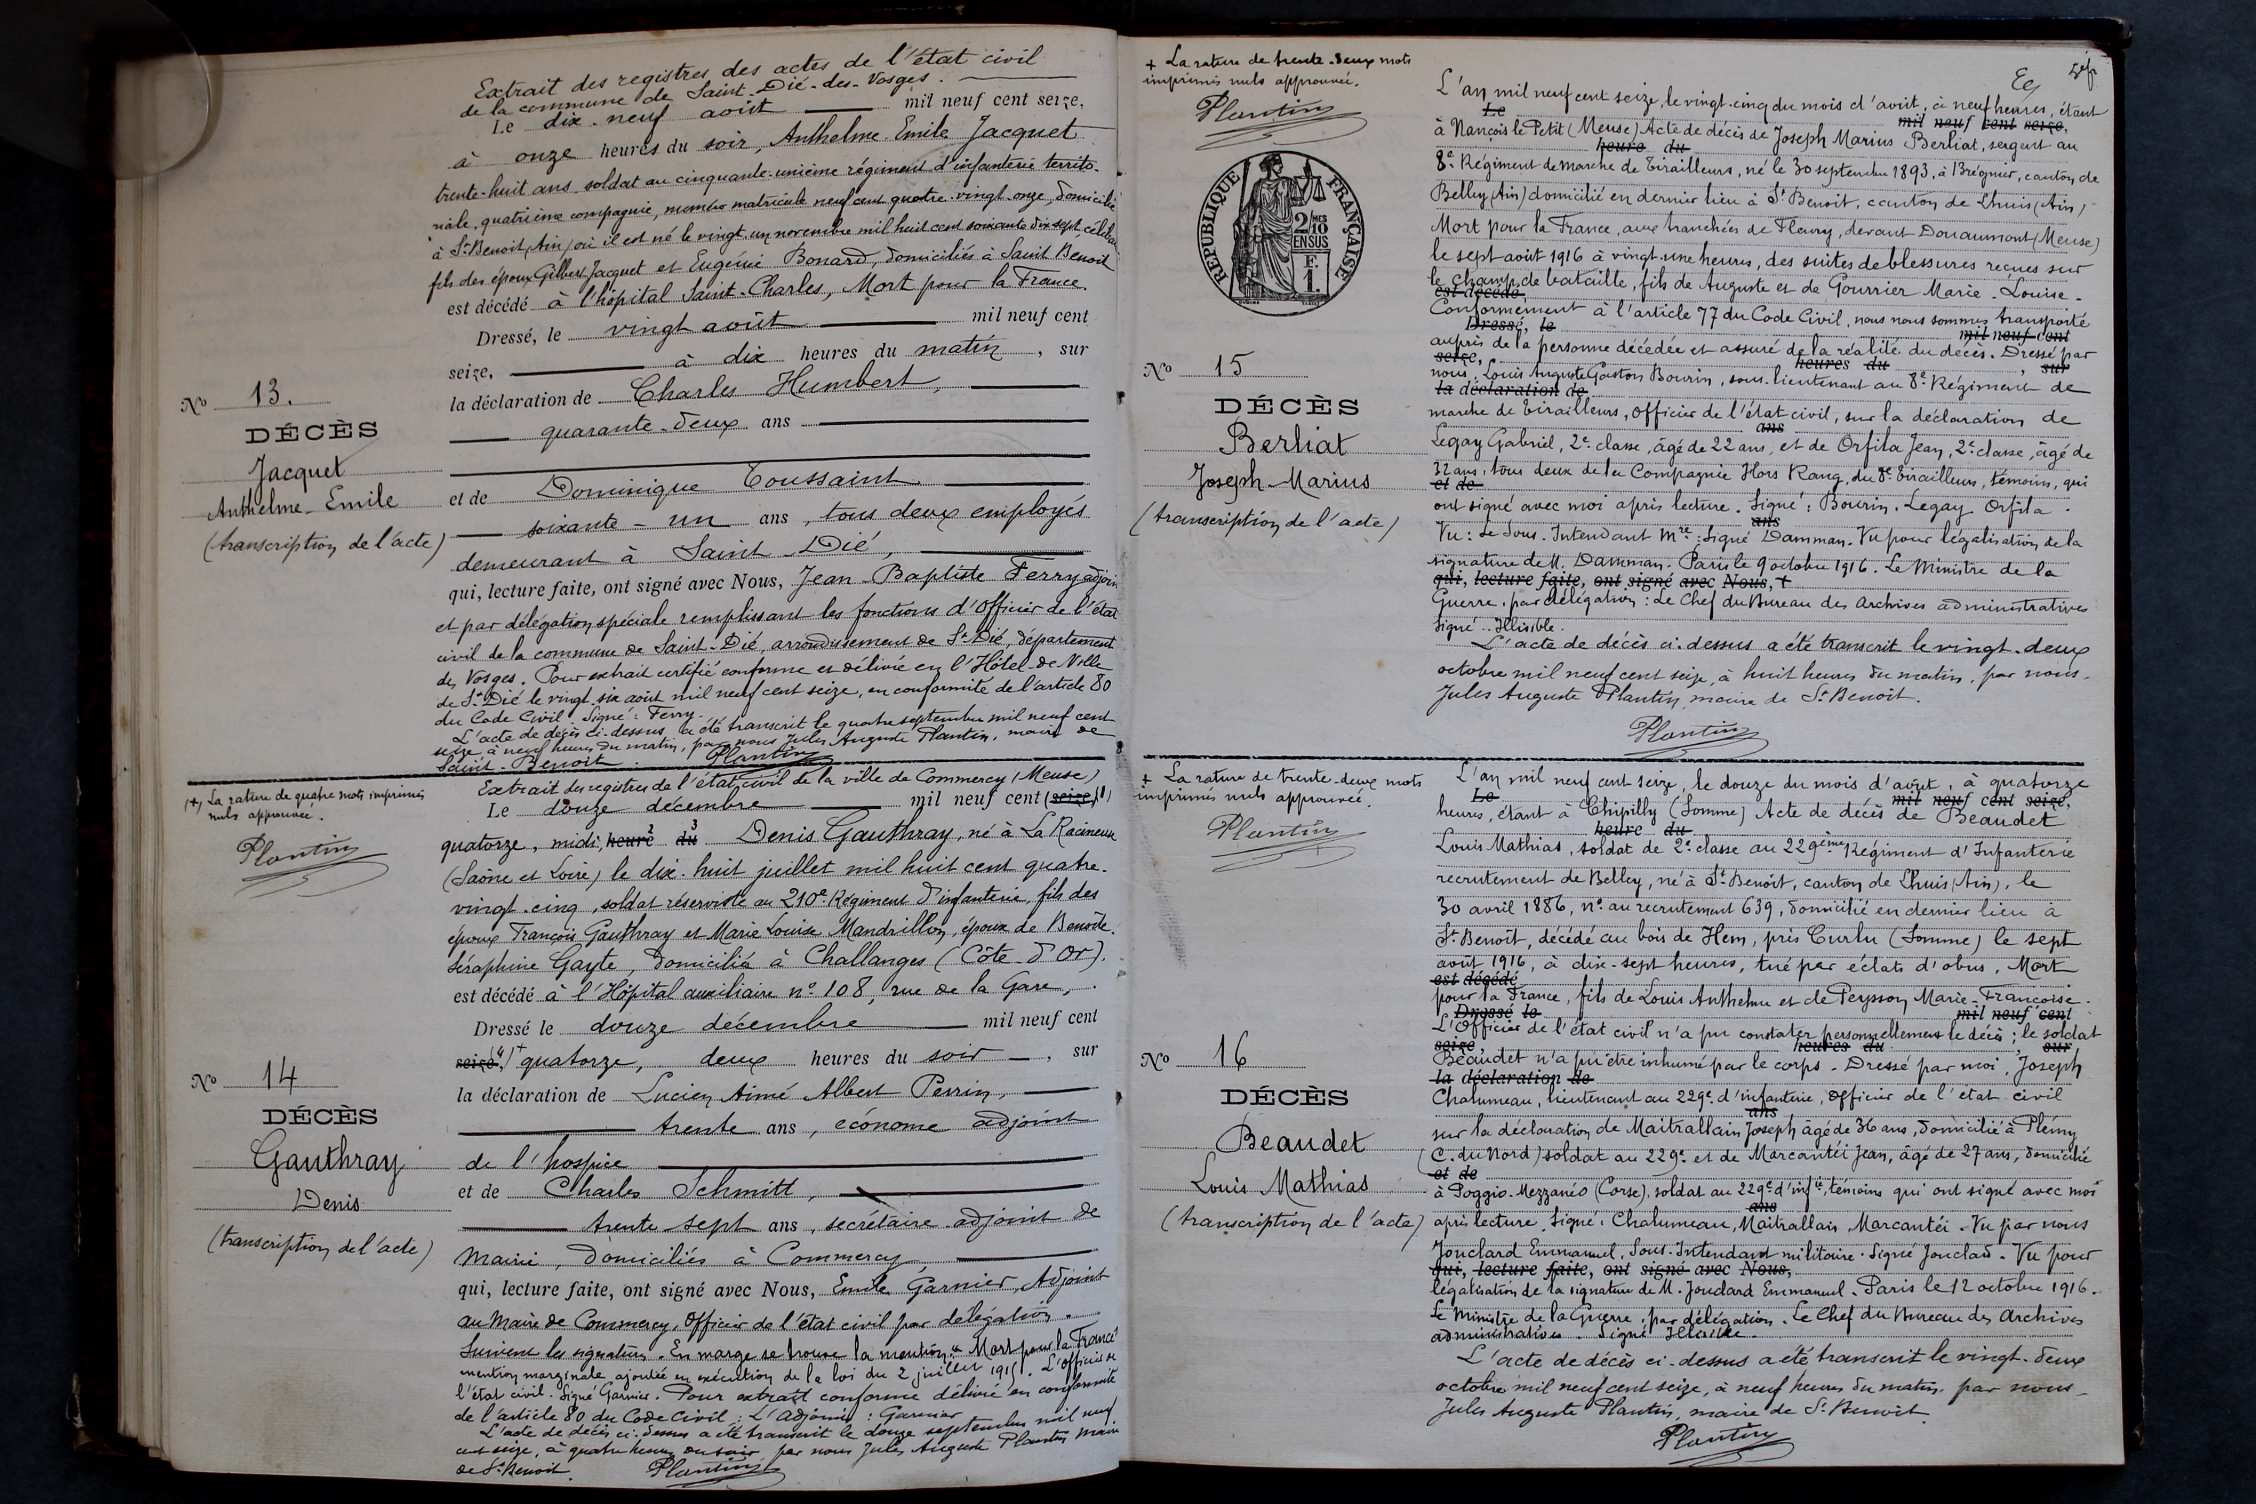 Extrait des registres des actes de l'état civil
de la commune de Saint-Dié-des-Vosges.
Le dix-neuf août mil neuf cent seize,
à onze heures du soir, Anthelme Emile Jacquet
trente-huit ans, soldat au cinquante-unième régiment d'infanterie territo-
riale, quatrième compagnie, numéro matricule neuf cent quatre-vingt onze, domicilié
à St-Benoit (Ain) où il est né le vingt un novembre mil huit cent soixante dix sept, céliba
fils des époux Gilbert Jacquet et Eugénie Bonard, domiciliés à Saint Benoit
est décédé à l'hôpital Saint-Charles, Mort pour la France.
Dressé, le vingt août mil neuf cent
seize, à dix heures du matin, sur
la déclaration de Charles Humbert,
quarante-deux ans
et de Dominique Toussaint
soixante-un ans, tous deux employés
demeurant à Saint-Dié,
qui, lecture faite, ont signé avec Nous, Jean-Baptiste Ferry adjoin
et par délégation spéciale remplissant les fonctions d'Officier de l'état
civil de la commune de Saint-Dié, arrondissement de St Dié, département
des Vosges. Pour extrait certifié conforme et délivré en l'Hôtel-de-Ville
de St Dié le vingt-six août mil neuf cent seize, en conformité de l'article 80
du Code Civil. Signé: Ferry.
L'acte de décès ci-dessus a été transcrit le quatre septembre mil neuf cent
seize à neuf heures du matin, par nous Jules Auguste Plantin, maire de
Saint-Benoit. Plantin
No 13.
DÉCÈS
Jacquet
Anthelme-Emile
(transcription de l'acte)
(+) La rature de quatre mots imprimés
nuls approuvée.
Plantin
Extrait des registres de l'état civil de la ville de Commercy (Meuse)
Le douze décembre mil neuf cent (seize,)(1)
quatorze, midi, heure 2 du 3 Denis Gauthray, né à La Racineuse
(Saône et Loire) le dix-huit juillet mil huit cent quatre-
vingt-cinq, soldat réserviste au 210e Régiment d'infanterie, fils des
époux François Gauthray et Marie Louise Mandrillon, époux de Benoîte
Séraphine Gayte, domicilié à Challanges (Côte-d'Or).
est décédé à l'Hôpital auxiliaire no 108, rue de la Gare,
Dressé le douze décembre mil neuf cent
seize (4)+ quatorze, deux heures du soir, sur
la déclaration de Lucien Aimé Albert Perrin,
trente ans, économe adjoint
de l'hospice
et de Charles Schmitt,
trente sept ans, secrétaire-adjoint de
Mairie, domiciliés à Commercy,
qui, lecture faite, ont signé avec Nous, Emile Garnier, Adjoint
au Maire de Commercy, Officier de l'état civil par délégation.
Suivent les signatures. En marge se trouve la mention "Mort pour la France"
mention marginale ajoutée en exécution de la loi du 2 juillet 1915. L'officier de
l'état civil. Signé Garnier. Pour extrait conforme délivré en conformité
de l'article 80 du Code Civil: L'adjoint: Garnier
L'acte de décès ci-dessus a été transcrit le douze septembre mil neuf
cent seize, à quatre heures du soir par nous Jules Auguste Plantin maire
de St Benoit. Plantin
No 14
DÉCÈS
Gauthray
Denis
(transcription de l'acte)
+ La rature de trente-deux mots
imprimés nuls approuvée.
Plantin
RÉPUBLIQUE FRANÇAISE
2/10 MES
EN SUS
F.
1.
No 15
DÉCÈS
Berliat
Joseph-Marius
(transcription de l'acte)
L'an mil neuf cent seize, le vingt-cinq du mois d'août, à neuf heures, étant
Le mil neuf cent seize,
à Nançois le Petit (Meuse) Acte de décès de Joseph Marius Berliat, sergent au
heure du
8e Régiment de marche de Tirailleurs, né le 30 septembre 1893, à Brégnier, canton de
Belley (Ain) domicilié en dernier lieu à St Benoit, canton de Lhuis (Ain)
Mort pour la France, aux tranchées de Fleury, devant Douaumont (Meuse)
le sept août 1916 à vingt-une heures, des suites de blessures reçues sur
le champ de bataille, fils de Auguste et de Gourrier Marie-Louise.
est décédé
Conformément à l'article 77 du Code Civil, nous nous sommes transporté
Dressé, le mil neuf cent
auprès de la personne décédée et assuré de la réalité du décès. Dressé par
seize, heures du, sur
nous, Louis Auguste Gaston Bourin, sous-lieutenant au 8e Régiment de
la déclaration de
marche de Tirailleurs, officier de l'état civil, sur la déclaration de
ans
Legay Gabriel, 2e classe, âgé de 22 ans, et de Orfila Jean, 2e classe, âgé de
32 ans, tous deux de la Compagnie Hors Rang, du 8e Tirailleurs, témoins, qui
et de
ont signé avec moi après lecture. Signé: Bourin. Legay Orfila.
ans
Vu: Le Sous-Intendant Mre: Signé Damman. Vu pour légalisation de la
signature de M. Damman. Paris le 9 octobre 1916. Le Ministre de la
qui, lecture faite, ont signé avec Nous, +
Guerre, par délégation: Le Chef du Bureau des Archives administratives
Signé: Illisible.
L'acte de décès ci-dessus a été transcrit le vingt-deux
octobre mil neuf cent seize, à huit heures du matin, par nous
Jules Auguste Plantin, maire de St Benoit.
Plantin
+ La rature de trente-deux mots
imprimés nuls approuvée.
Plantin
No 16
DÉCÈS
Beaudet
Louis Mathias
(transcription de l'acte)
L'an mil neuf cent seize, le douze du mois d'août, à quatorze
Le mil neuf cent seize,
heures, étant à Chipilly (Somme) Acte de décès de Beaudet
heure du
Louis Mathias, soldat de 2e classe au 229ème Régiment d'Infanterie
recrutement de Belley, né à St Benoît, canton de Lhuis (Ain), le
30 avril 1886, no au recrutement 639, domicilié en dernier lieu à
St Benoît, décédé au bois de Hem, près Curlu (Somme) le sept
août 1916, à dix-sept heures, tué par éclats d'obus, Mort
est décédé
pour la France, fils de Louis Anthelme et de Peysson Marie-Françoise.
Dressé le mil neuf cent
L'Officier de l'état civil n'a pu constater personnellement le décès; le soldat
seize, heures du, sur
Beaudet n'a pu être inhumé par le corps. Dressé par moi, Joseph
la déclaration de
Chalumeau, lieutenant au 229e d'infanterie, officier de l'état civil
ans
sur la déclaration de Maitrallain Joseph âgé de 36 ans, domicilié à Plémy
(C. du Nord) soldat au 229e et de Marcantéi Jean, âgé de 27 ans, domicilié
et de
à Poggio-Mezzanéo (Corse), soldat au 229e d'infie, témoins qui ont signé avec moi
ans
après lecture. Signé: Chalumeau, Maitrallain, Marcantéi. Vu par nous
Jouclard Emmanuel, Sous-Intendant militaire. Signé Jouclard. Vu pour
qui, lecture faite, ont signé avec Nous,
légalisation de la signature de M. Jouclard Emmanuel. Paris le 12 octobre 1916.
Le Ministre de la Guerre, par délégation. Le Chef du Bureau des Archives
administratives. Signé Illisible.
L'acte de décès ci-dessus a été transcrit le vingt-deux
octobre mil neuf cent seize, à neuf heures du matin par nous
Jules Auguste Plantin, maire de St Benoit.
Plantin